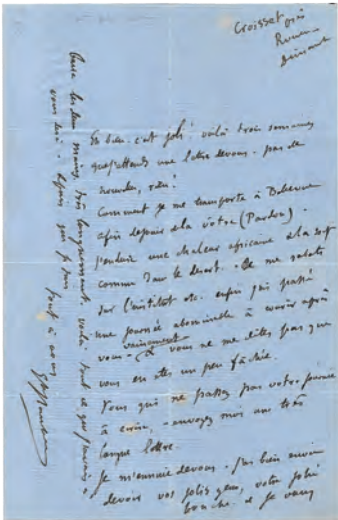 Croisset près
Rouen
Dimanche
Eh bien c'est joli ! voilà trois semaines
que j'attends une lettre de vous. pas de
nouvelles, rien !
Comment je me transporte à Bellevue
afin de vous la vôtre (Pardon).
j'endure une chaleur africaine et la soif
comme dans le desert. Je me
sur l'institut etc. enfin j'ai passé
une journée abominable à courir après
vous vainement & vous ne me dites pas que
vous en êtes un peu fâchée.
Vous qui ne passez pas votre journée
à écrire, envoyez moi une très
longue lettre.
Je m'ennuie de vous. j'ai bien envie
de voir vos jolis yeux, votre jolie
bouche. et je vous
baise les deux mains, très longuement. voilà tout ce que j'
vous dire. depuis que je suis
tout à vous
G Flaubert